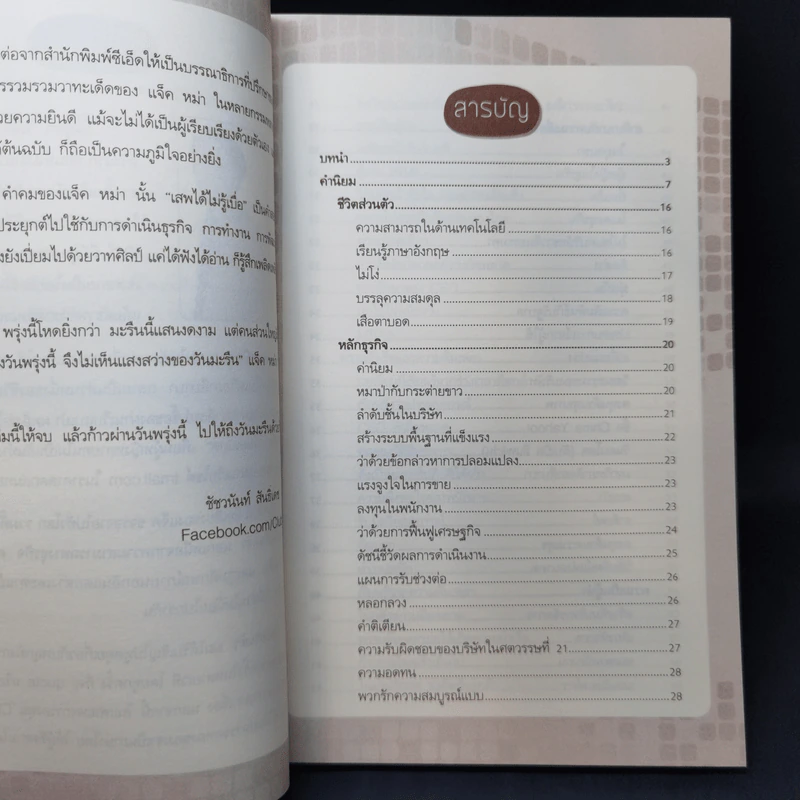 ต่อจากสำนักพิมพ์ซีเอ็ดให้เป็นบรรณาธิการที่ปรึกษา
รรวมรวมวาทะเด็ดของ แจ็ค หม่า ในหลายกรรม
วยความยินดี แม้จะไม่ได้เป็นผู้เรียบเรียงด้วยตัวเอง
ต้นฉบับ ก็ถือเป็นความภูมิใจอย่างยิ่ง
คำคมของแจ็ค หม่า นั้น "เสพได้ไม่รู้เบื่อ" เป็น
ประยุกต์ไปใช้กับการดำเนินธุรกิจ การทำงาน การ
งยังเปี่ยมไปด้วยวาทศิลป์ แค่ได้ฟังได้อ่าน ก็รู้สึก
พรุ่งนี้โหดยิ่งกว่า มะรืนนี้แสนงดงาม แต่คนส่วน
งวันพรุ่งนี้ จึงไม่เห็นแสงสว่างของวันมะรืน" แจ็ค หม่า
มนี้ให้จบ แล้วก้าวผ่านวันพรุ่งนี้ ไปให้ถึงวันมะรืน
ชัชวนันท์
Facebook.com/
สารบัญ
บทนำ 3
คำนิยม 7
ชีวิตส่วนตัว 16
ความสามารถในด้านเทคโนโลยี 16
เรียนรู้ภาษาอังกฤษ 16
ไม่โง่ 17
บรรลุความสมดุล 18
เสือตาบอด 19
หลักธุรกิจ 20
ค่านิยม 20
หมาป่ากับกระต่ายขาว 20
ลำดับชั้นในบริษัท 21
สร้างระบบพื้นฐานที่แข็งแรง 22
ว่าด้วยข้อกล่าวหาการปลอมแปลง 23
แรงจูงใจในการขาย 23
ลงทุนในพนักงาน 23
ว่าด้วยการฟื้นฟูเศรษฐกิจ 24
ดัชนีชี้วัดผลการดำเนินงาน 25
แผนการรับช่วงต่อ 26
หลอกลวง 26
คำติเตียน 27
ความรับผิดชอบของบริษัทในศตวรรษที่ 21 27
ความอดทน 28
พวกรักความสมบูรณ์แบบ 28